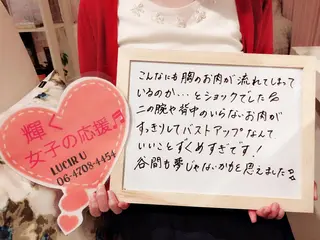 輝く
女子の応援♬
LUCIR U
06-4708-4454
こんなにも胸のお肉が流れてしまって
いるのか…とショックでした
二の腕や背中のいらないお肉が
すっきりしてバストアップなんて
いいことずくめすぎです!
谷間も夢じゃないかもと思えました